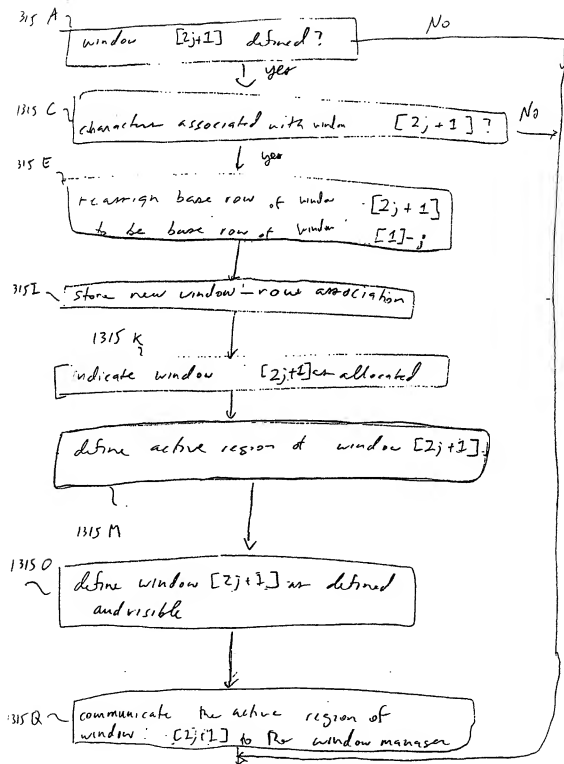 315 A
window [2j+1] defined?
No
yes
1315 C
characters associated with window [2j+1]?
No
yes
315 E
reassign base row of window [2j+1]
to be base row of window [1]-j
315I
store new window-row association
1315 K
indicate window [2j+1] as allocated
define active region of window [2j+1].
1315 M
1315 O
define window [2j+1] as defined
and visible
1315Q
communicate the active region of
window: [2j+1] to the window manager